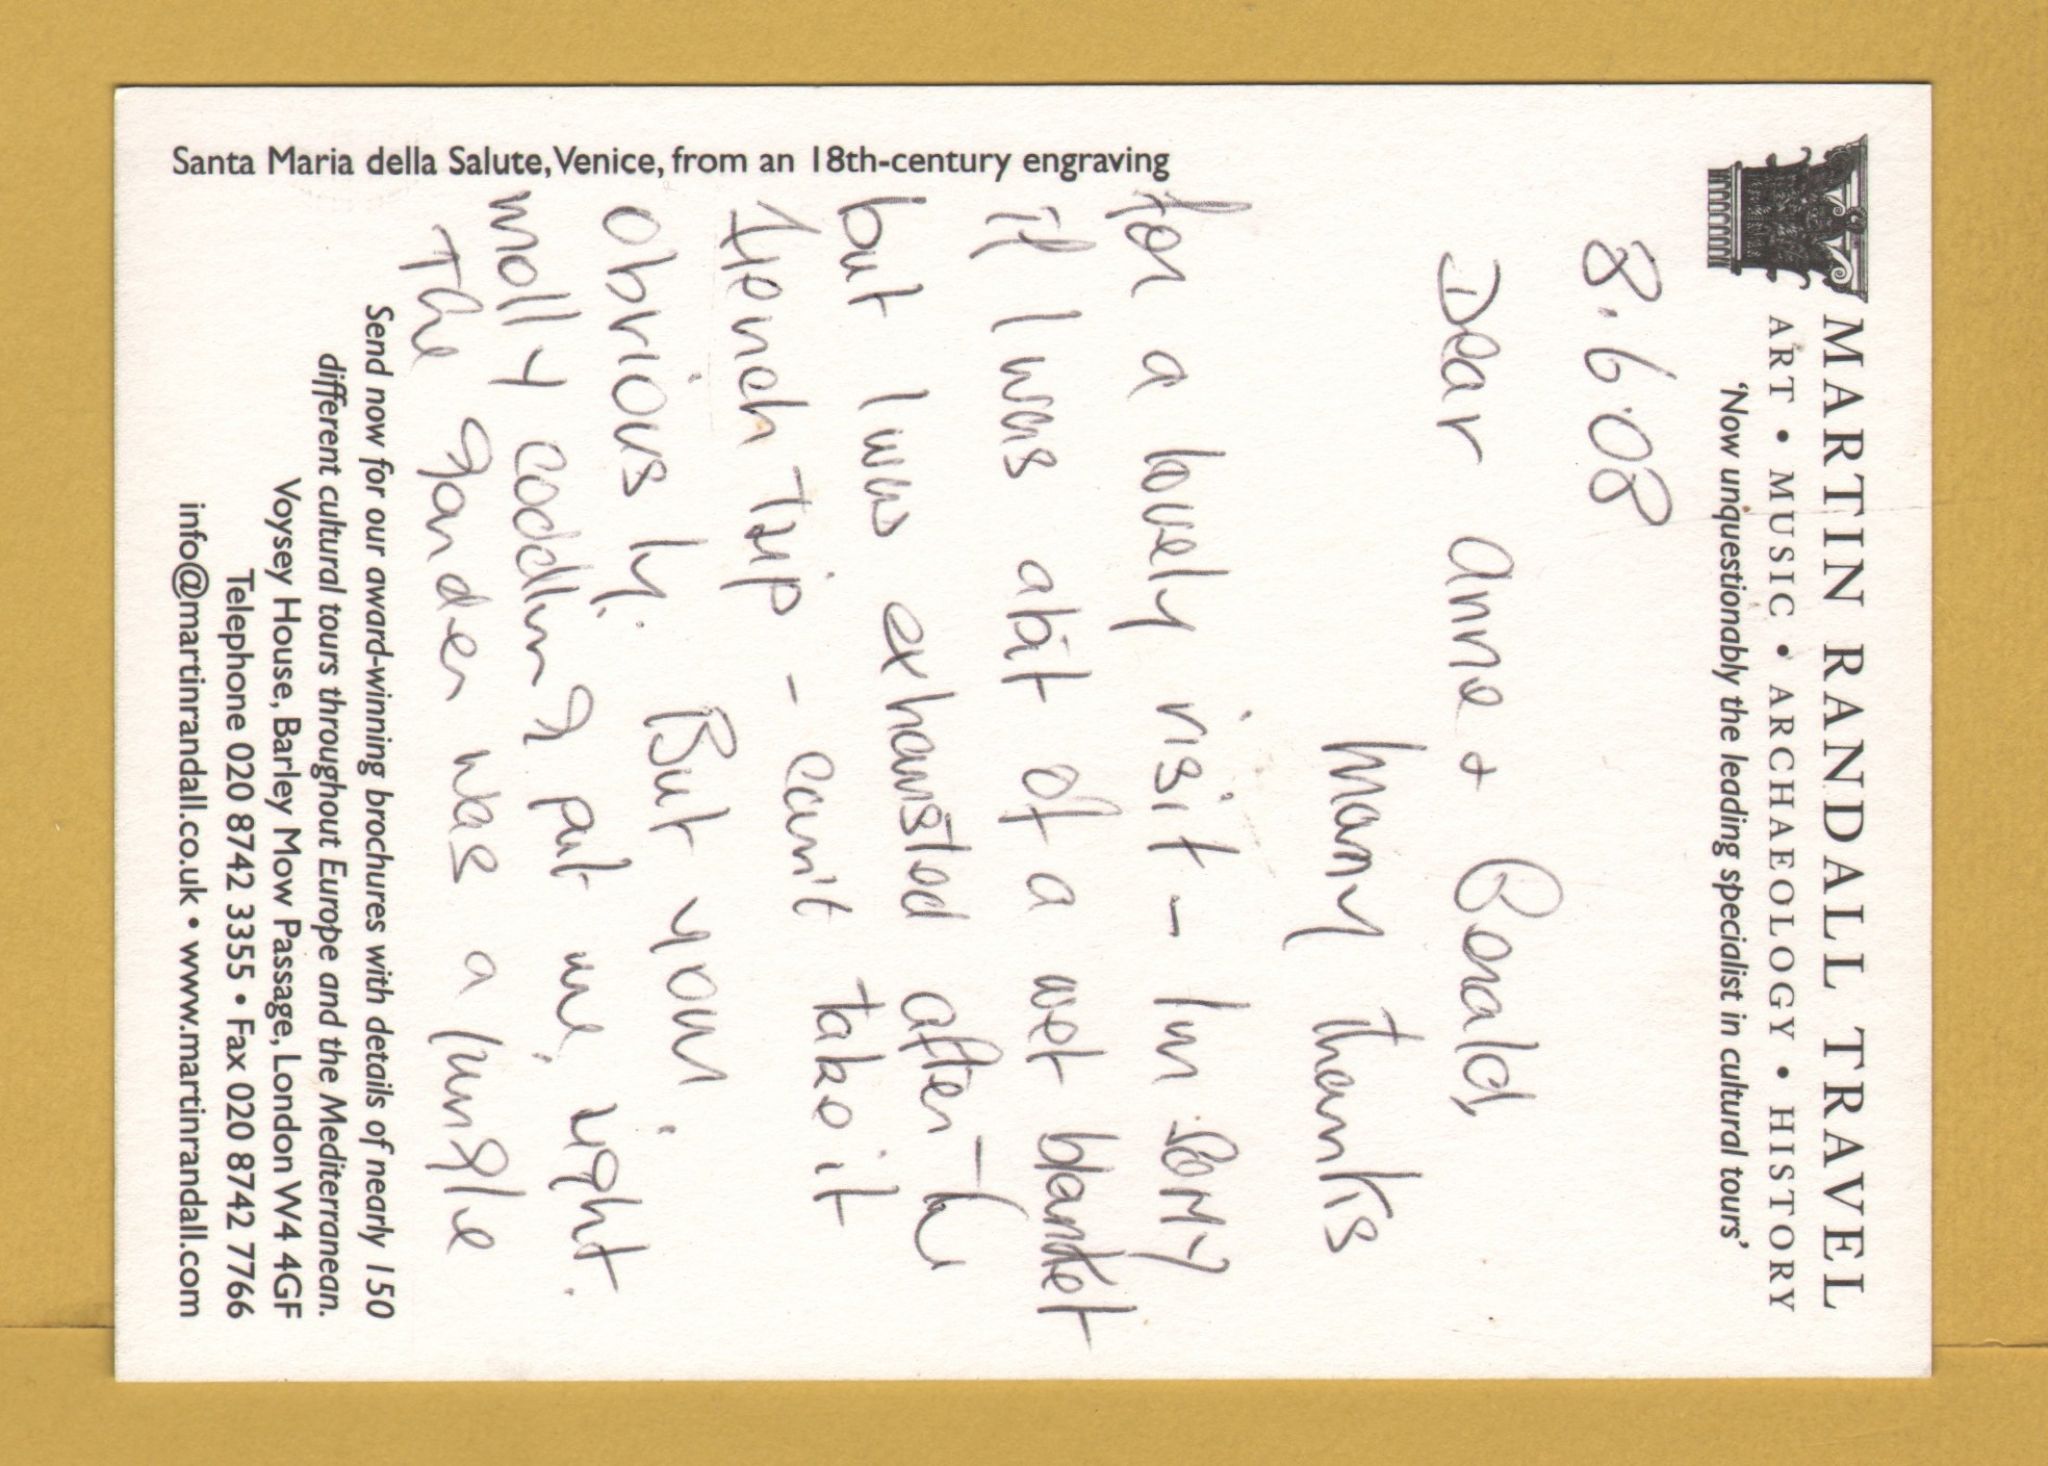 MARTIN RANDALL TRAVEL
ART • MUSIC • ARCHAEOLOGY • HISTORY
'Now unquestionably the leading specialist in cultural tours'
8.6.08
Dear Anne + Ronald,
Many thanks
for a lovely visit – I'm sorry
if I was a bit of a wet blanket
but I was exhausted after the
French trip – can't take it
obviously. But your
molly coddling put me right.
The garden was a jungle
Send now for our award-winning brochures with details of nearly 150
different cultural tours throughout Europe and the Mediterranean.
Voysey House, Barley Mow Passage, London W4 4GF
Telephone 020 8742 3355 • Fax 020 8742 7766
info@martinrandall.co.uk • www.martinrandall.com
Santa Maria della Salute, Venice, from an 18th-century engraving